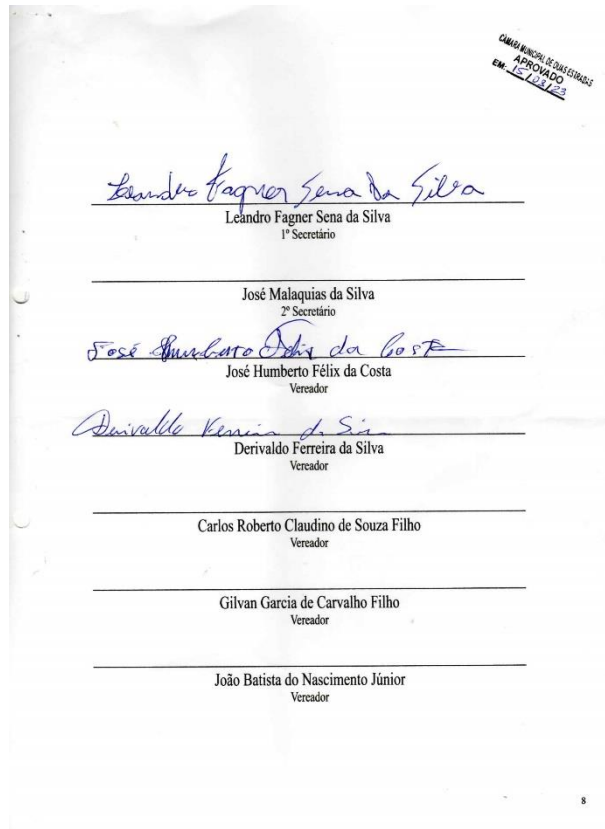 CÂMARA MUNICIPAL DE DUAS ESTRADAS
APROVADO
EM: 15/03/23
Leandro Fagner Sena Da Silva
Leandro Fagner Sena da Silva
1º Secretário
José Malaquias da Silva
2º Secretário
José Humberto Felix da Costa
José Humberto Félix da Costa
Vereador
Derivaldo Ferreira da Silva
Derivaldo Ferreira da Silva
Vereador
Carlos Roberto Claudino de Souza Filho
Vereador
Gilvan Garcia de Carvalho Filho
Vereador
João Batista do Nascimento Júnior
Vereador
8